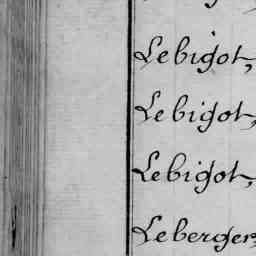 Lebigot,
Lebigot,
Lebigot,
Leberger,